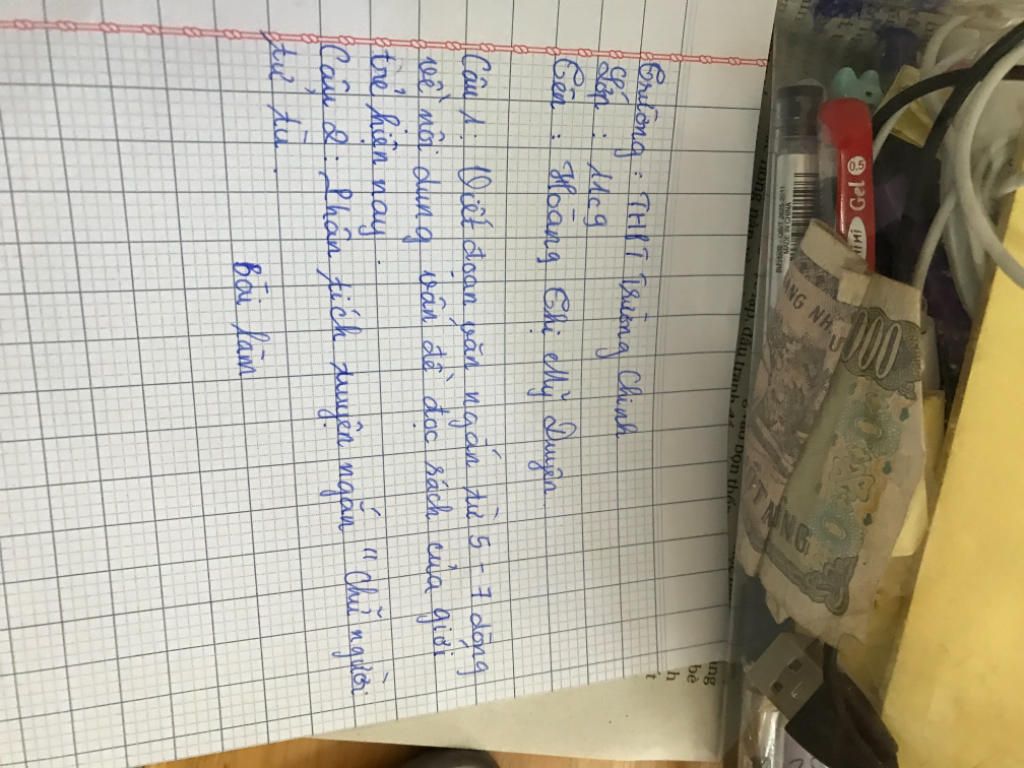 Trường : THPT Trường Chinh
Lớp : 11c9
Tên : Hoàng Thị Mỹ Duyên
Câu 1. Viết đoạn văn ngắn từ 5 - 7 dòng
về nội dung vấn đề đọc sách của giới
trẻ hiện nay.
Câu 2. Phân tích truyện ngắn " chữ người
tử tù.
Bài làm
0.5
Gel
000